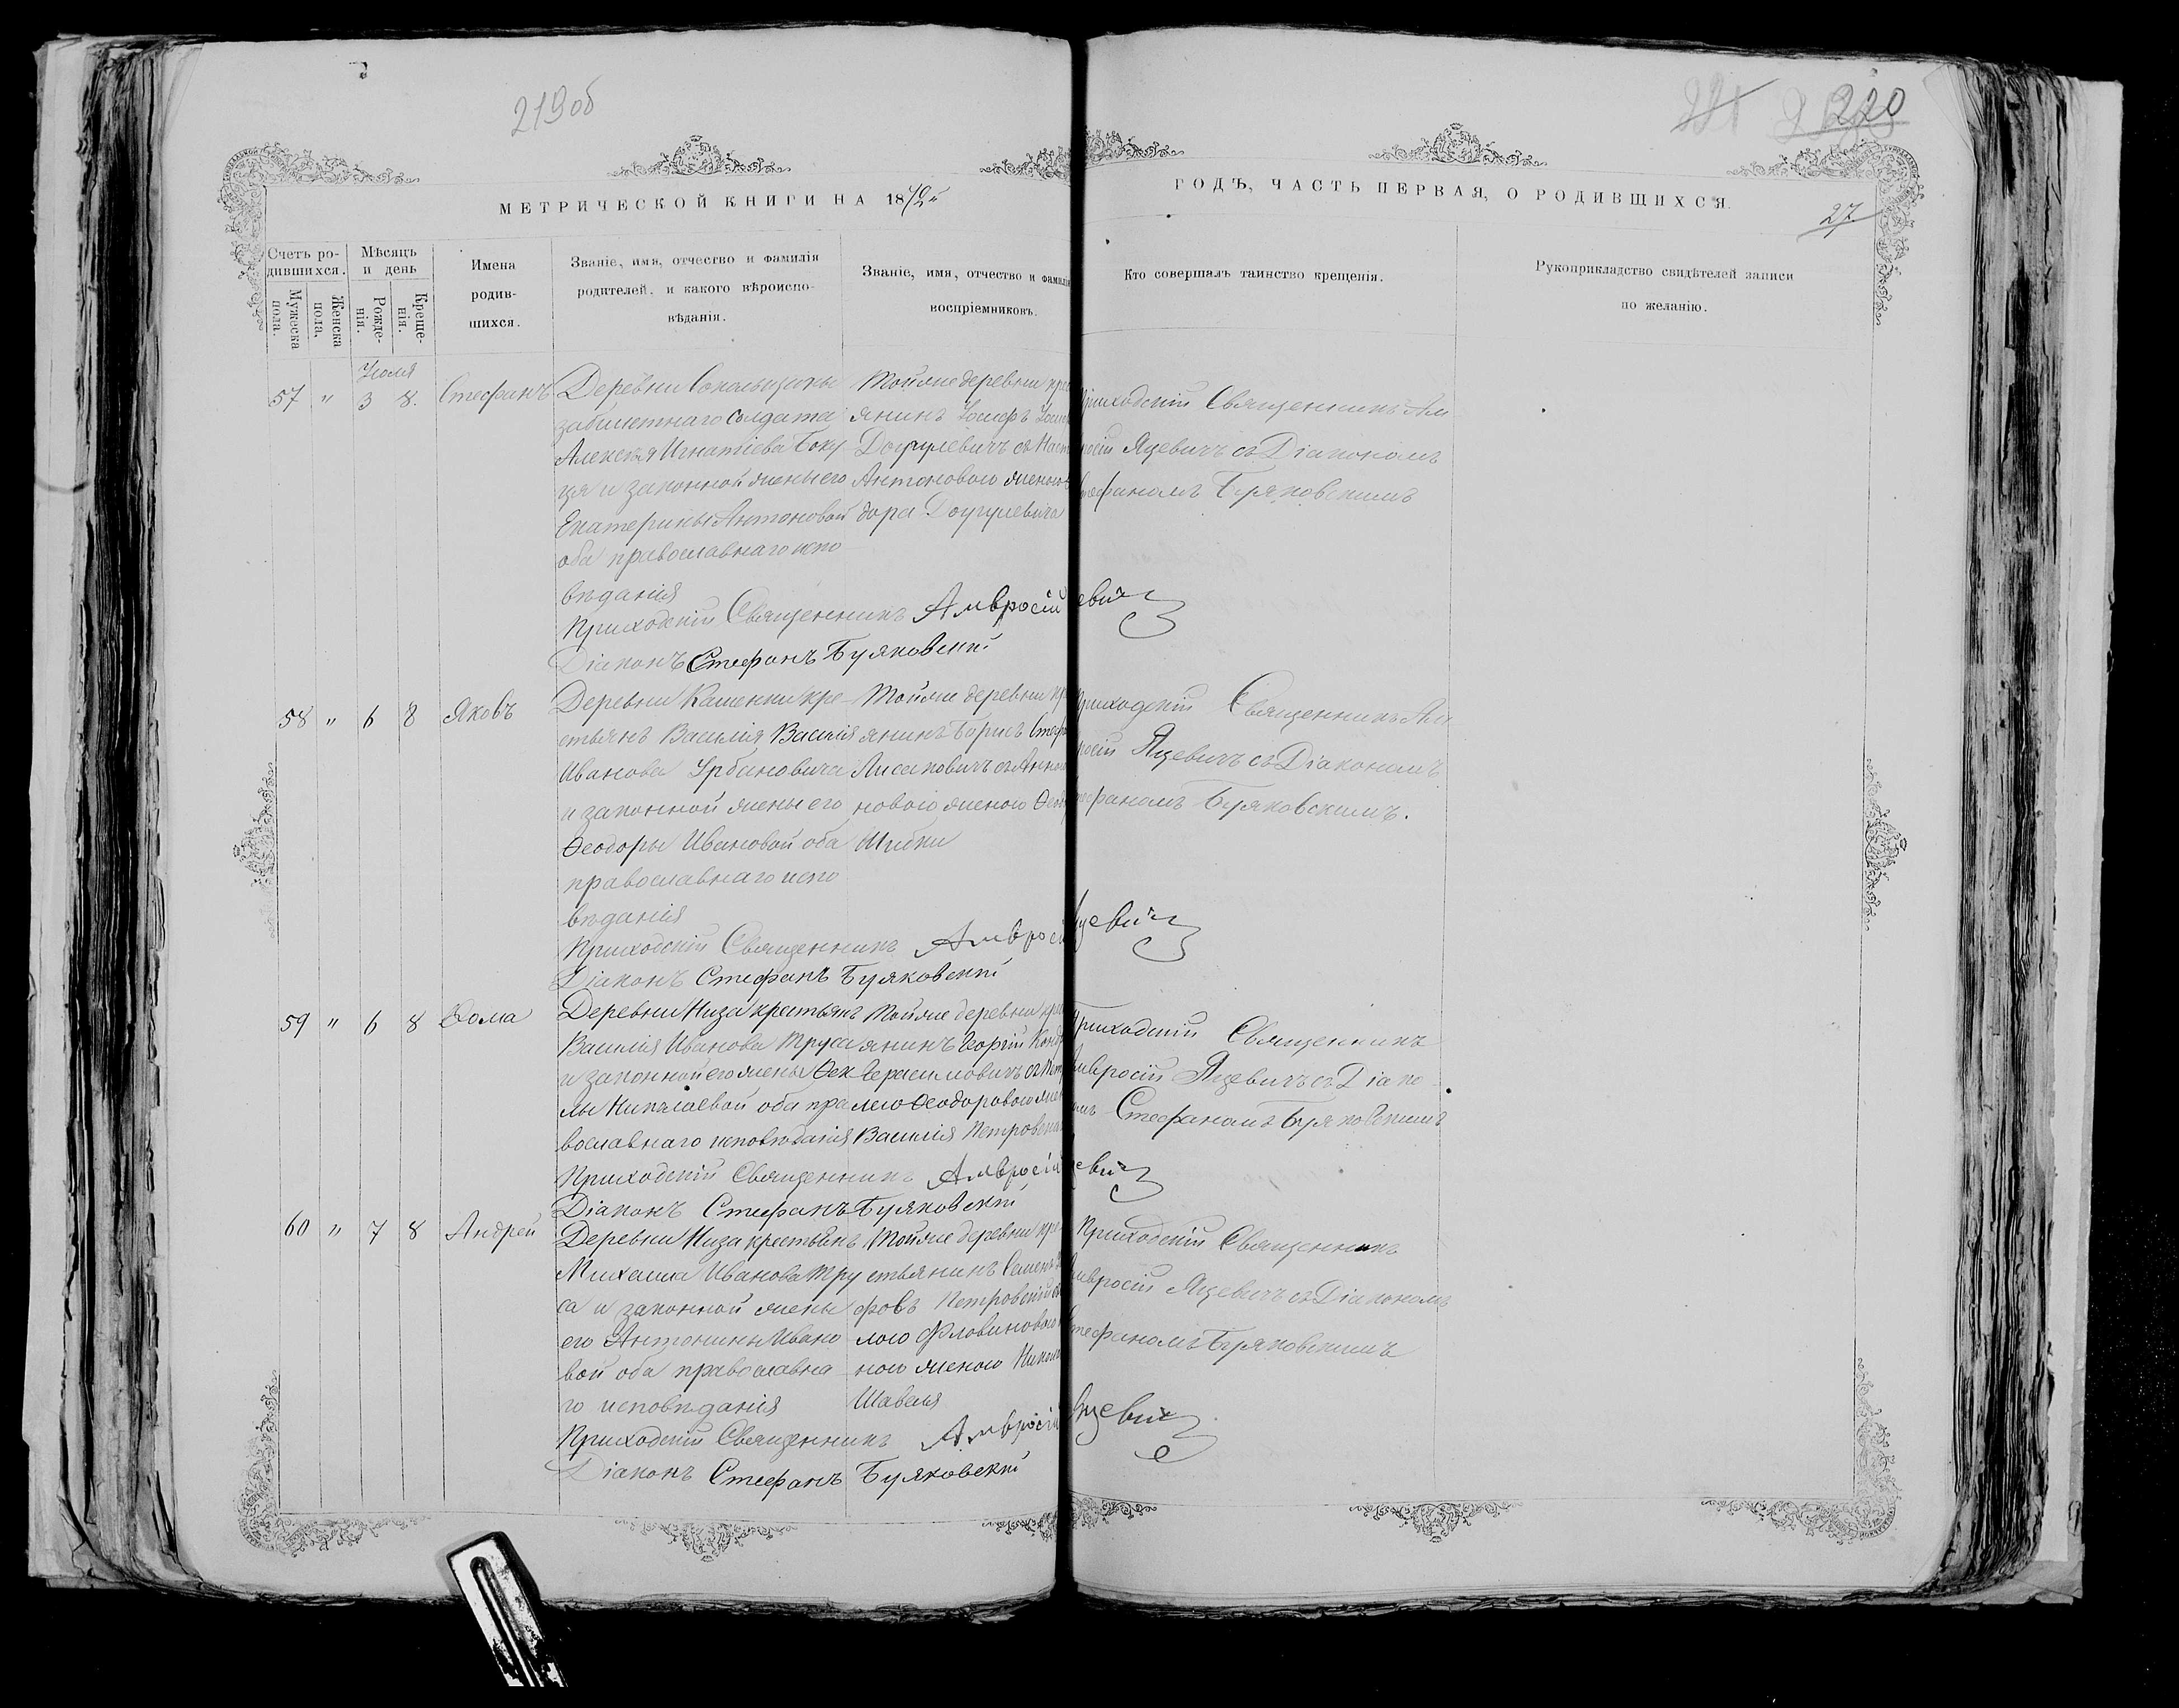 219об
220
МЕТРИЧЕСКОЙ КНИГИ НА 1872
ГОДЪ, ЧАСТЬ ПЕРВАЯ, О РОДИВШИХСЯ.
27
Счетъ ро-
дившихся.
Мужеска пола.
Женска пола.
Мѣсяцъ
и день
Рожде-
нія.
Креще-
нія.
Имена
родив-
шихся.
Званіе, имя, отчество и фамилія
родителей. и какого вѣроиспо-
вѣданія.
Званіе, имя, отчество и фамилія
воспріемниковъ.
Кто совершалъ таинство крещенія.
Рукоприкладство свидѣтелей записи
по желанію.
Іюля
57 " 3 8. Стефанъ
Деревни
забилетнаго солдата
Алексѣя Игнатіева Боку
ця и законной жены его
Екатерины Антоновой
оба православнаго испо
вѣданія
Тойже деревни кре
янинъ Іосифъ
Доргулевичъ съ
Антоновою женою
дора Доргулевича
Приходскій Священникъ Ам
росій Яцевичъ съ Діакономъ
тефаномъ Буяковскимъ
Приходскій Священникъ Амвросій евичъ
Діаконъ Стефанъ Буяковскій
58 " 6 8 Яковъ
Деревни Каменки кре
стьянъ Василія Василія
Иванова Урбановича
и законной жены его
Ѳеодоры Ивановой оба
православнаго испо
вѣданія
Тойже деревни кр
янинъ Борисъ Стеф
Лисаковичъ съ Анною
новою женою Ѳеод
Шибки
Приходскій Священникъ Ам
росій Яцевичъ съ Діакономъ
тефаномъ Буяковскимъ.
Приходскій Священникъ Амвросій цевичъ
Діаконъ Стефанъ Буяковскій
59 " 6 8 Ѳома
Деревни Низа крестьянъ
Василія Иванова Труса
и законной его жены Ѳек
лы Николаевой оба пра
вославнаго исповѣданія
Тойже деревни кре
янинъ Георгій Конд
Герасимовичъ съ
лею Ѳеодоровою жен
Василія Петровска
Приходскій Священникъ
Амвросій Яцевичъ съ Діако
омъ Стефаномъ Буяковскимъ
Приходскій Священникъ Амвросій цевичъ
Діаконъ Стефанъ Буяковскій
60 " 7 8 Андрей
Деревни Низа крестьянъ
Михаила Иванова Тру
са и законной жены
его Антонины Ивано
вой оба православна
го исповѣданія
Тойже деревни кре
стьянинъ Семенъ
фовъ Петровскій
лою
ною женою Никол
Шавеля
Приходскій Священникъ
Амвросій Яцевичъ съ Діакономъ
Стефаномъ Буяковскимъ
Приходскій Священникъ Амвросій Яцевичъ
Діаконъ Стефанъ Буяковскій